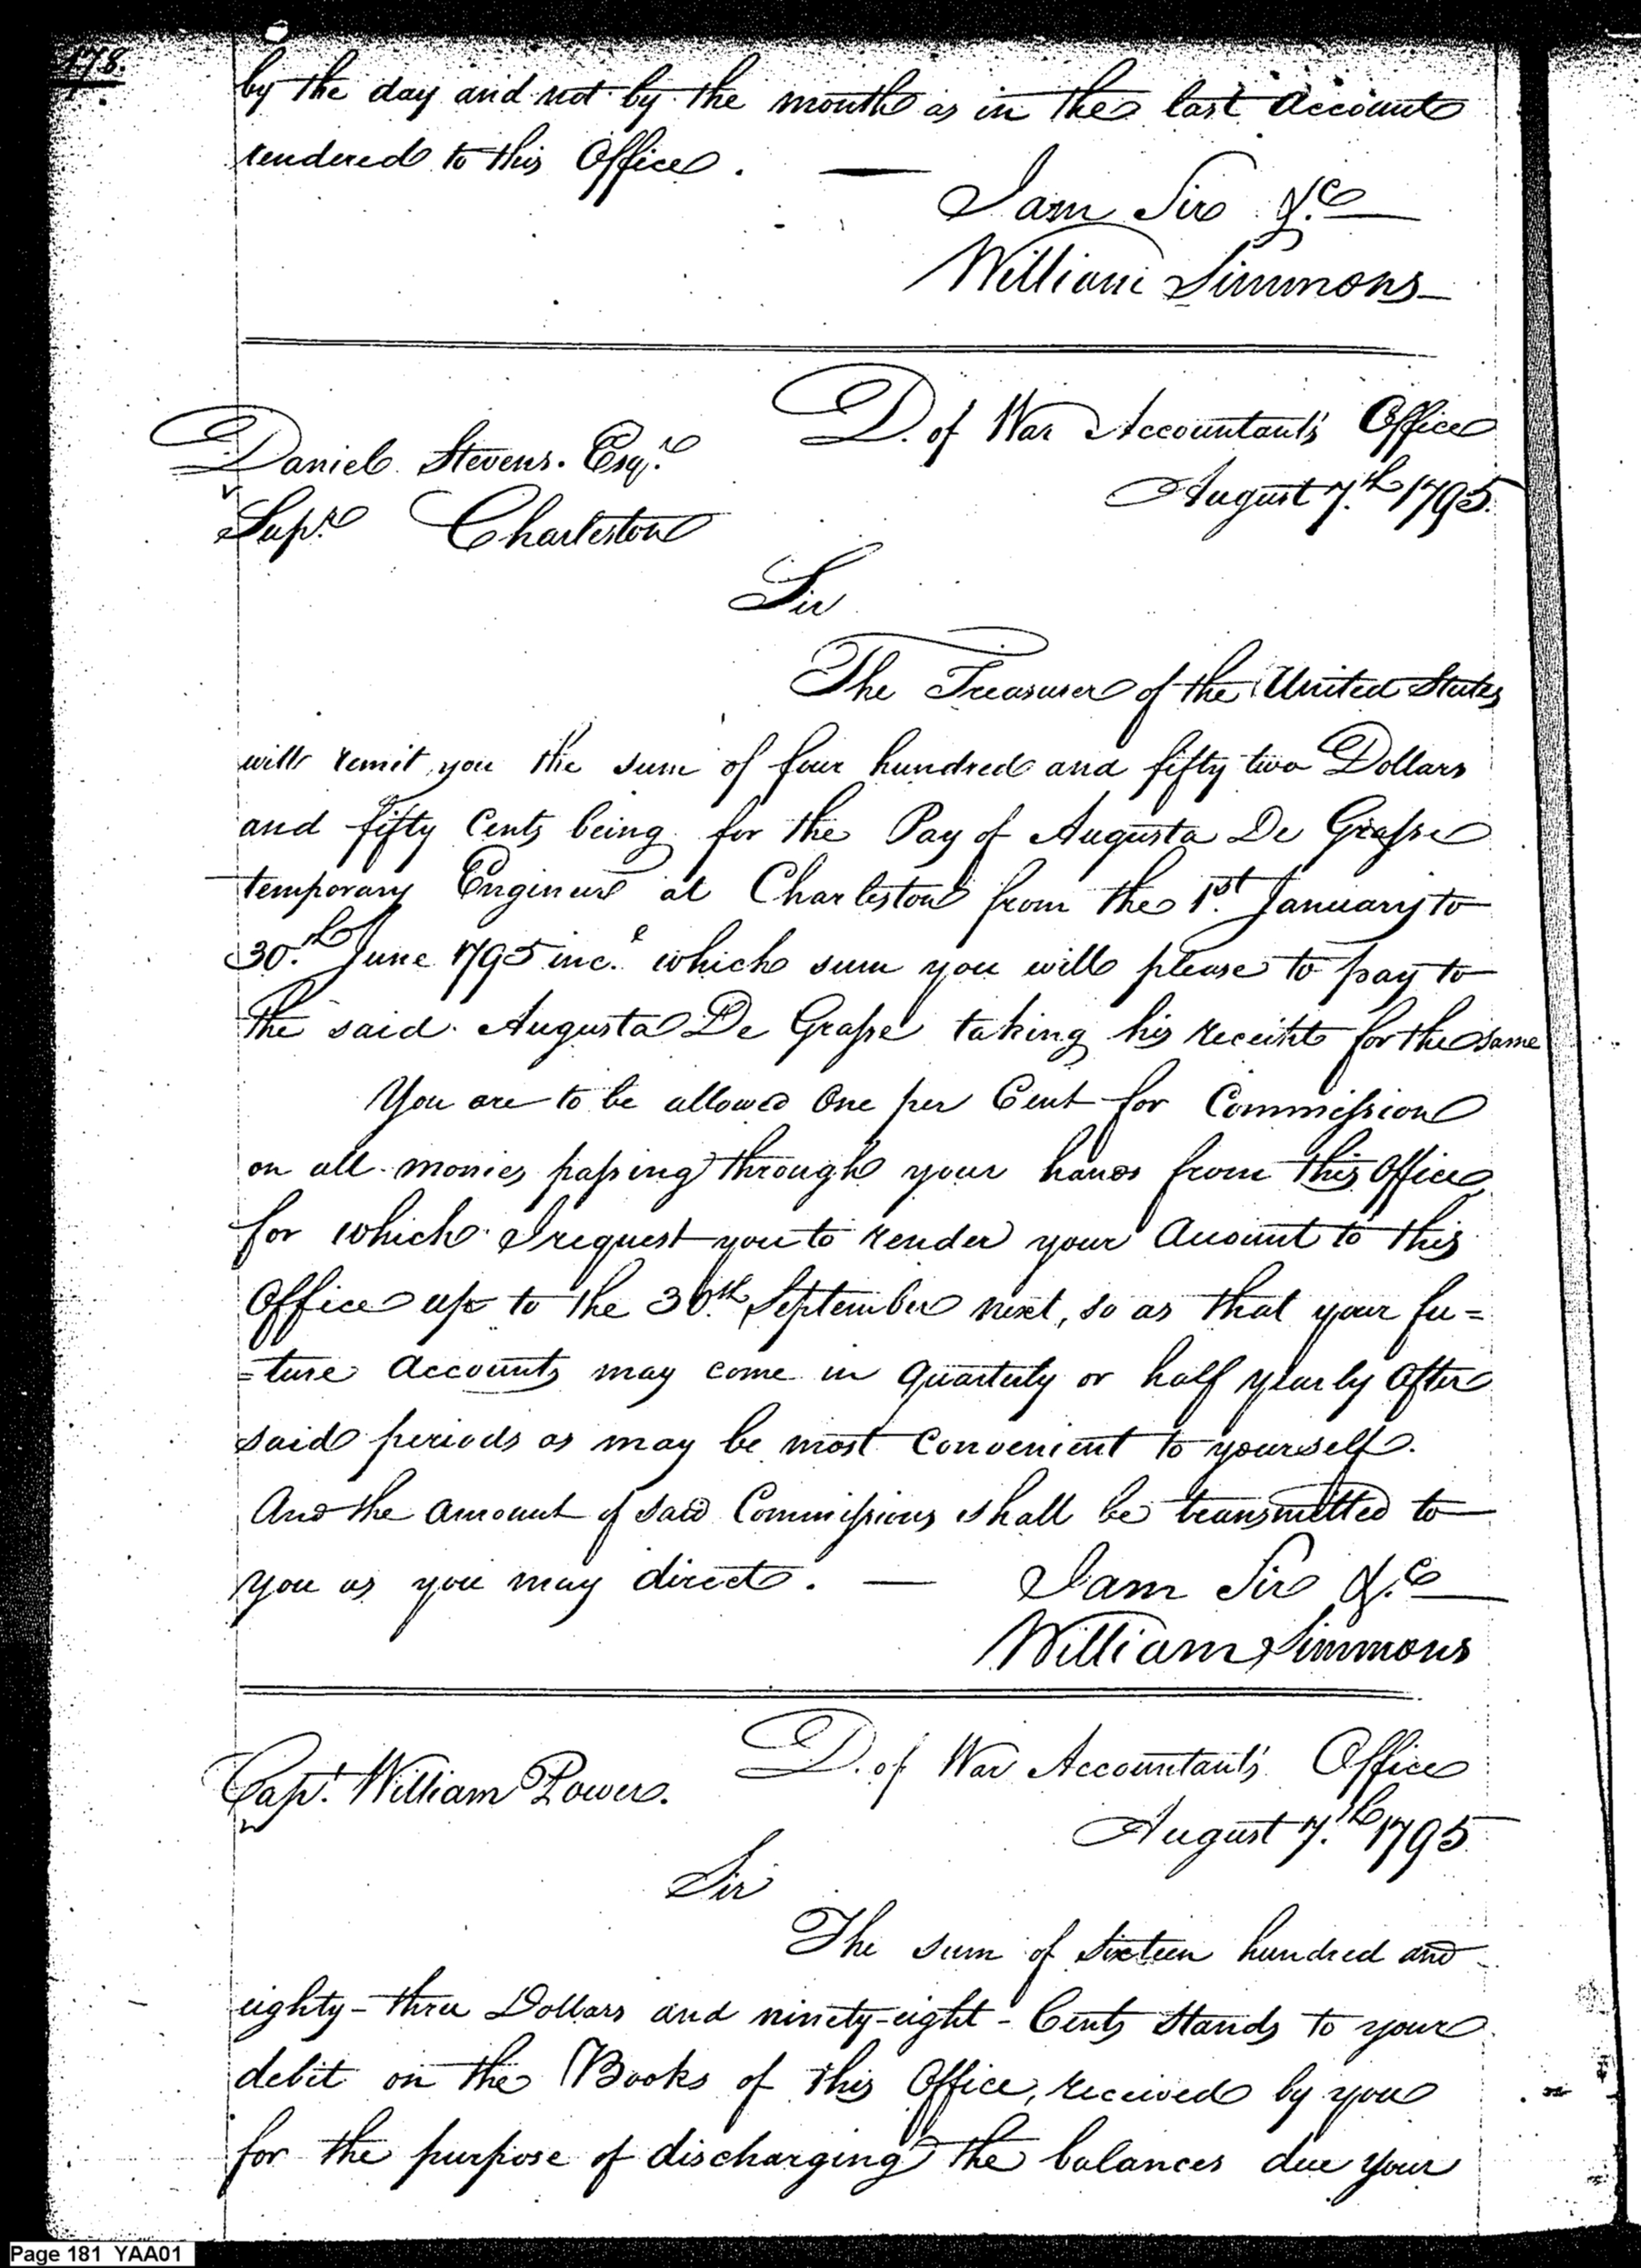 178.
by the day and not by the month as in the last Account
rendered to this Office. —
I am Sir &c
William Simmons
D. of War Accountant's Office
Daniel Stevens. Esqre
August 7th 1795.
Supr Charleston
Sir
The Treasurer of the United States
will remit you the sum of four hundred and fifty two Dollars
and fifty Cents being for the Pay of Augusta De Grasse
temporary Engineer at Charleston from the 1st January to
30th June 1795 ince which sum you will please to pay to
the said Augusta De Grasse taking his receipt for the same
You are to be allowed One per Cent for Commission
on all monies passing through your hands from this Office
for which I request you to render your Account to this
Office up to the 30th September next, so as that your fu=
=ture Accounts may come in quarterly or half yearly After
said periods as may be most Convenient to yourself.
And the amount of said Commissions shall be transmitted to
you as you may direct. — I am Sir &c
William Simmons
D. of War Accountant's Office
Capt. William Power.
August 7th 1795
Sir
The sum of sixteen hundred and
eighty-three Dollars and ninety-eight-Cents stands to your
debit on the Books of this Office, received by you
for the purpose of discharging the balances due your
Page 181 YAA01